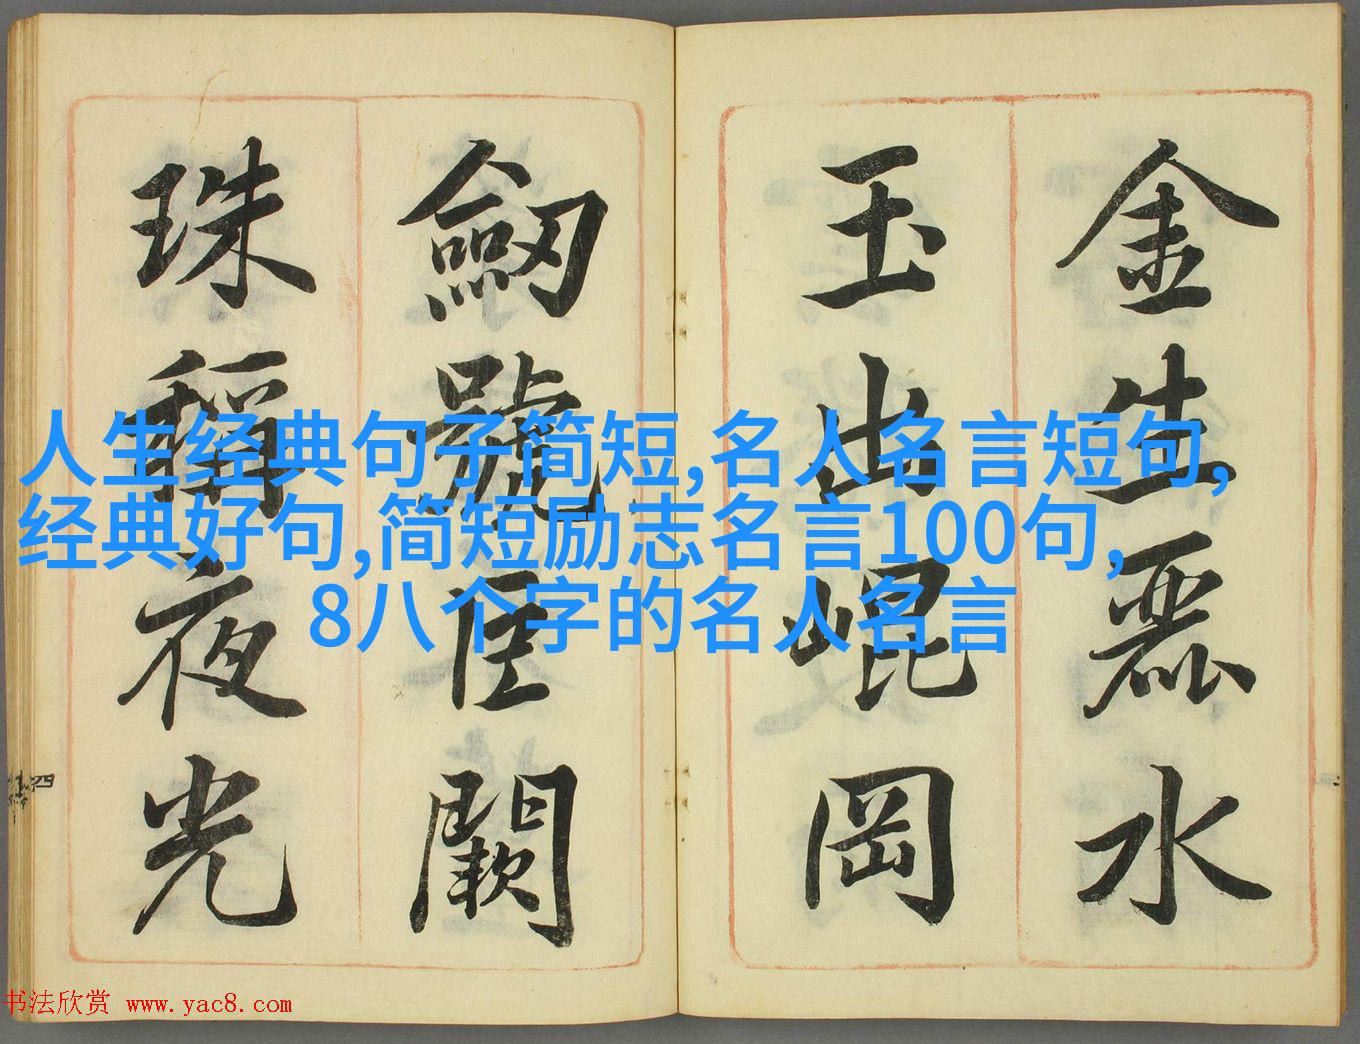 金生麗水
玉出崐岡
劒號巨闕
珠稱夜光
人生经典句子简短,名人名言短句,
经典好句,简短励志名言100句,
8八个字的名人名言
四
书法欣赏 www.yac8.com